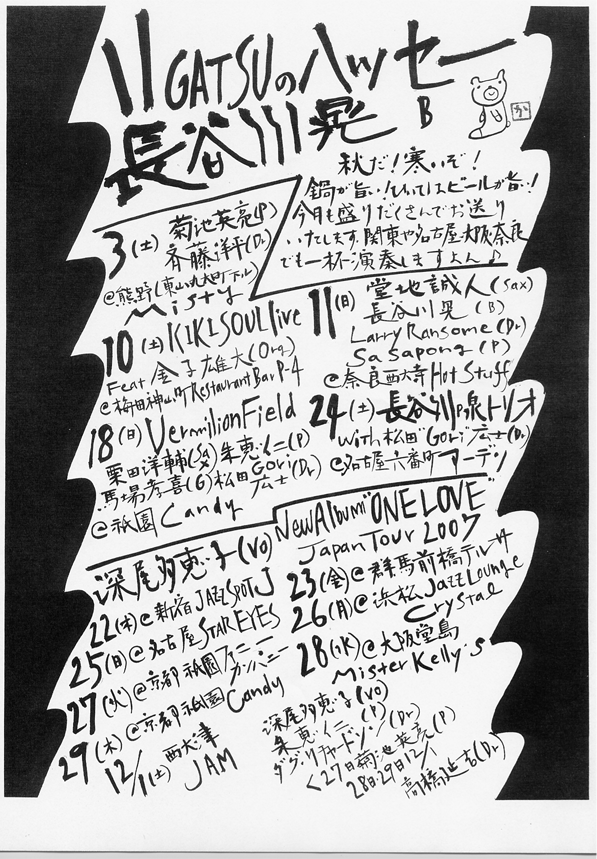 11GATSUのハッセー
長谷川晃 B
秋だ!寒いぞ!
鍋が旨い!ひいてはビールが旨い!
今月も盛りだくさんでお送り
いたします。関東や名古屋大阪奈良
でも一杯演奏しますよん♪
3(土) 菊池英亮(P)
斉藤洋平(Dr)
@熊野(東山丸太町下ル)
Misty
10(土) KIKI SOUL live
Feat 金子雄太(Org.)
@梅田神山町Restaurant Bar P-4
11(日) 堂地誠人(Sax)
長谷川晃(B)
Larry Ransome(Dr)
Sasapong(P)
@奈良西大寺Hot Stuff
18(日) Vermilion Field
栗田洋輔(Sax)朱恵仁(P)
馬場孝喜(G)松田Gori広士(Dr)
@祇園Candy
24(土)長谷川晃トリオ
with松田"Gori"広士(Dr)
@名古屋六番町アーデン
New Album"ONE LOVE"
Japan Tour 2007
深尾多恵子(VO)
22(木)@新宿JAZZ SPOT J
23(金)@群馬前橋テルサ
25(日)@名古屋STAR EYES
26(月)@浜松Jazz Lounge
Crystal
27(火)@京都祇園ファニー
カンパニー
28(水)@大阪堂島
Mister Kelly's
29(木)@京都祇園Candy
12/1(土)西大津
JAM
深尾多恵子(VO)
朱恵仁(P)
ダグ・リチャードソン(Dr)
<27日菊池英亮(P)
28日29日12/1